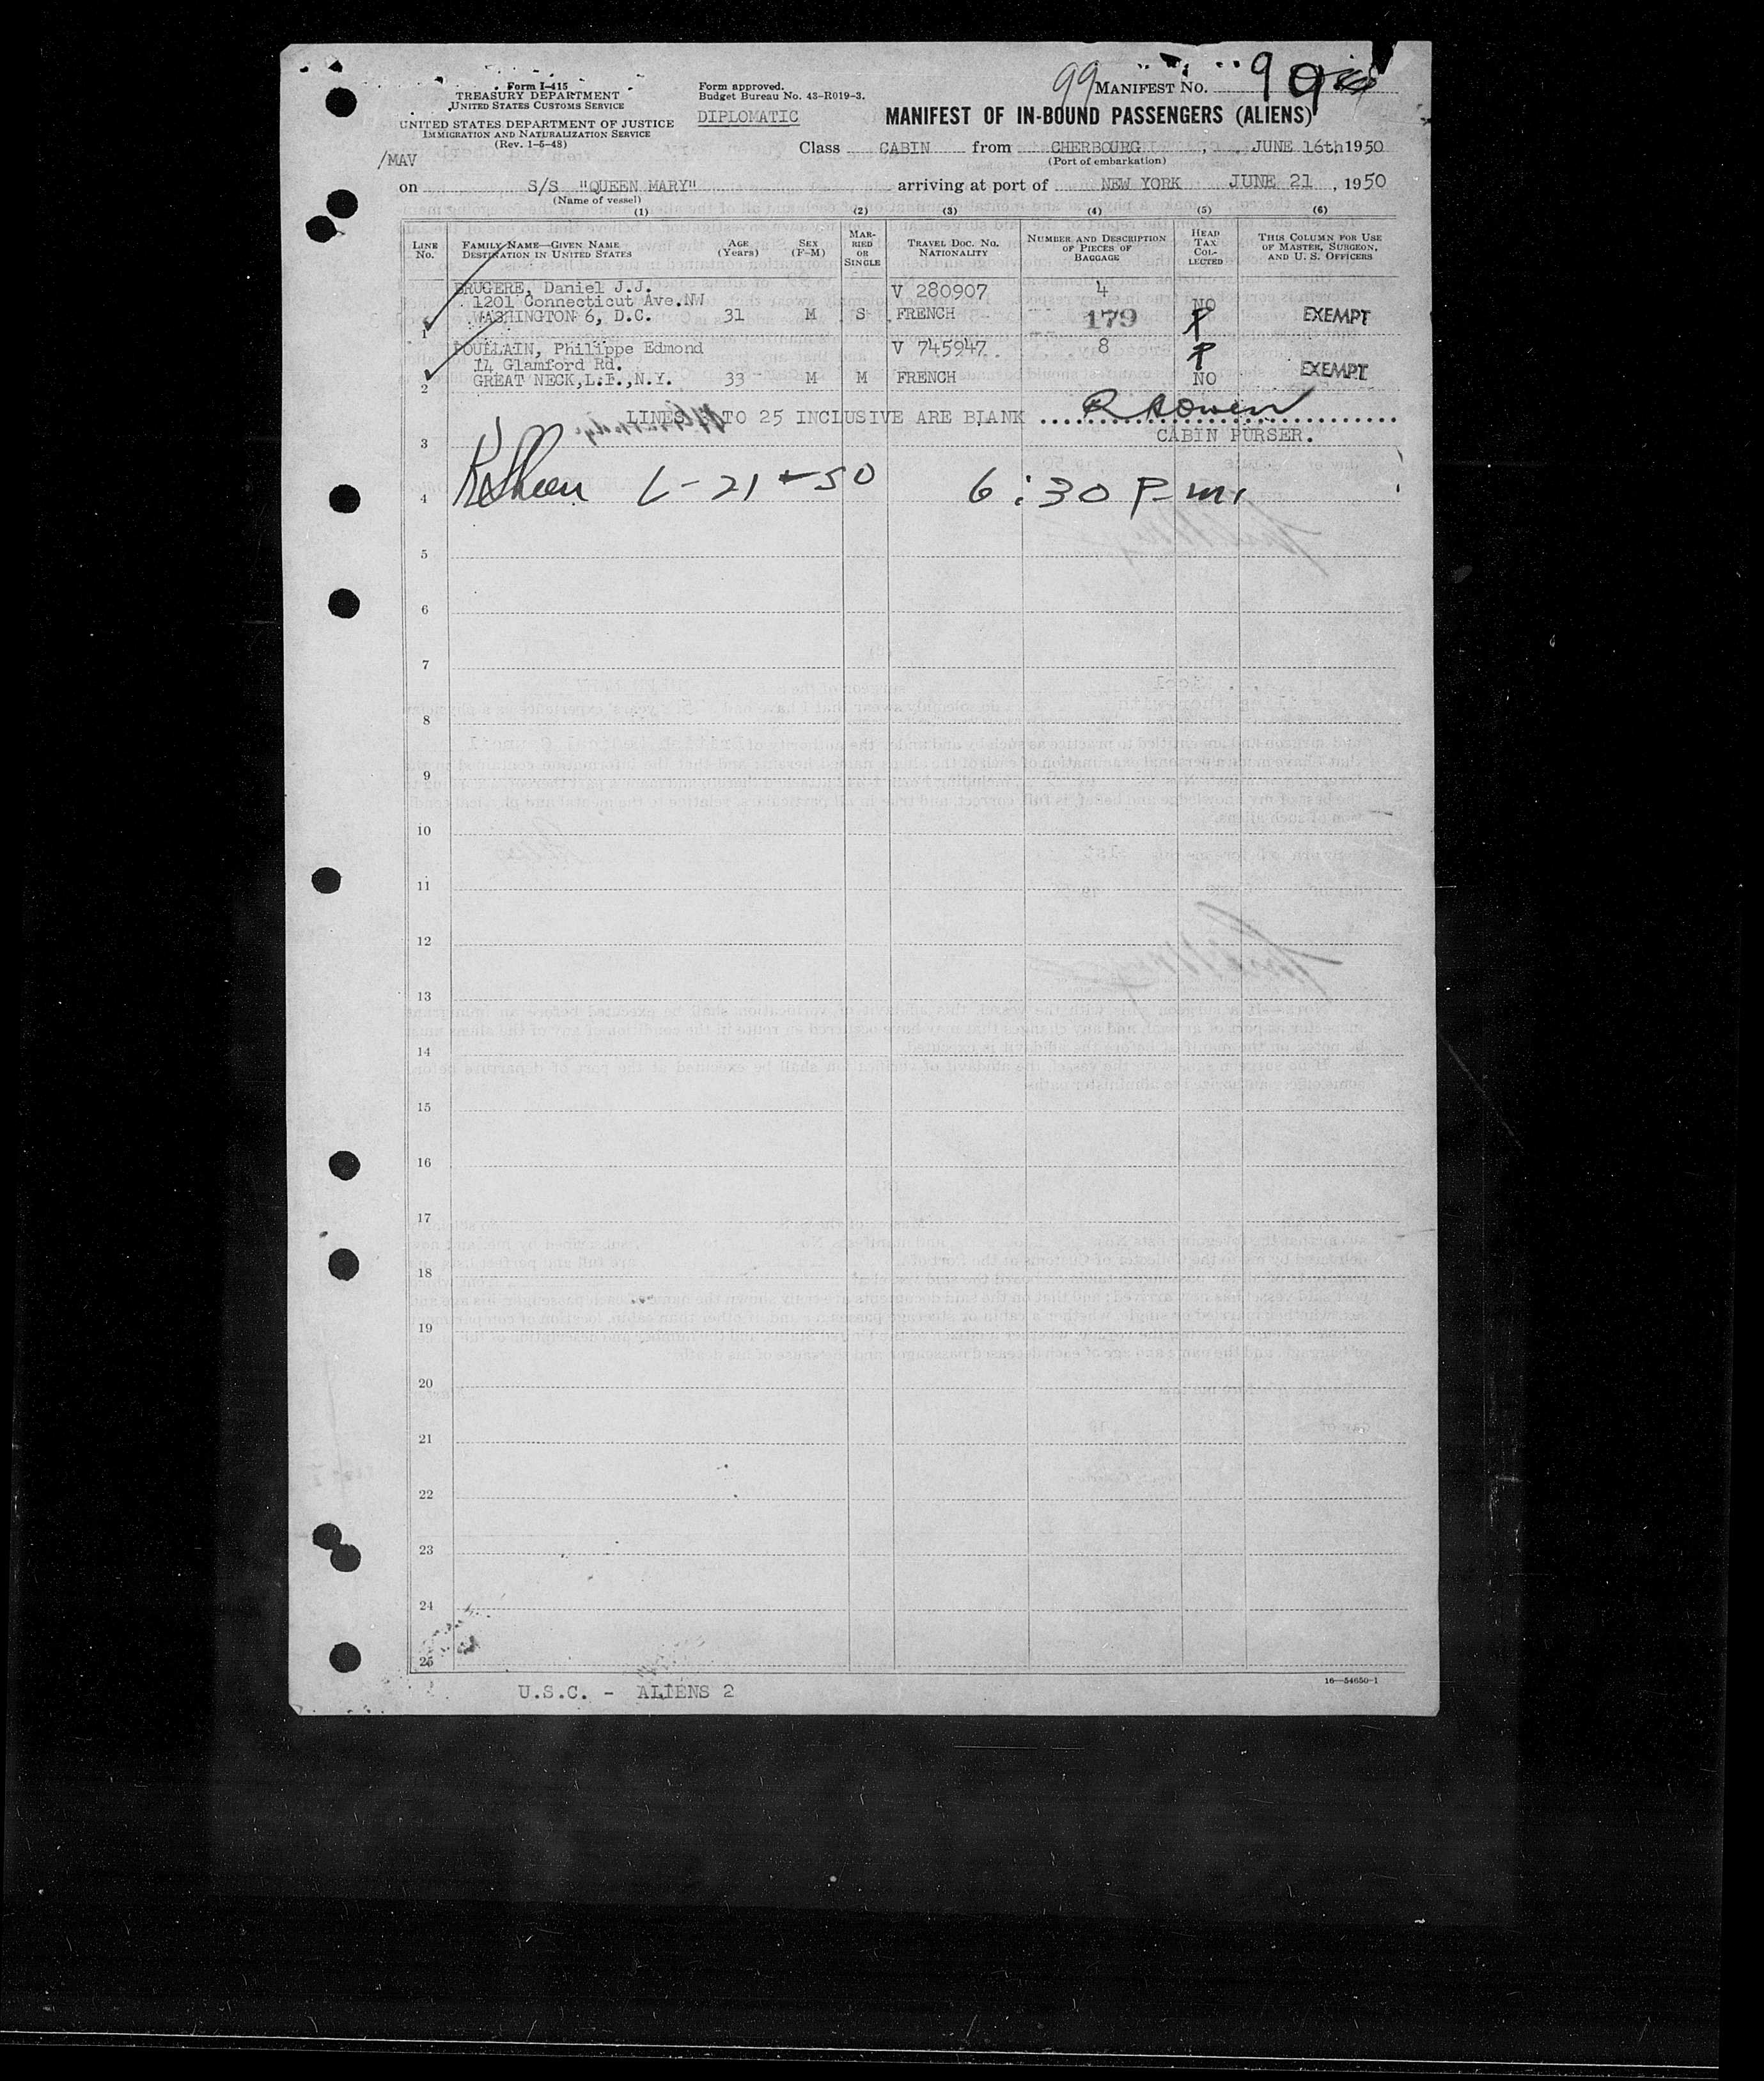 Form I-415
TREASURY DEPARTMENT
UNITED STATES CUSTOMS SERVICE
UNITED STATES DEPARTMENT OF JUSTICE
IMMIGRATION AND NATURALIZATION SERVICE
(Rev. 1-5-48)
/MAV
Form approved.
Budget Bureau No. 43-R019-3.
DIPLOMATIC
99 MANIFEST No. 99
MANIFEST OF IN-BOUND PASSENGERS (ALIENS)
Class CABIN from CHERBOURG, JUNE 16th 1950
(Port of embarkation)
on S/S "QUEEN MARY" arriving at port of NEW YORK JUNE 21, 1950
(Name of vessel)
(1) (2) (3) (4) (5) (6)
LINE No.
FAMILY NAME—GIVEN NAME
DESTINATION IN UNITED STATES
AGE (Years)
SEX (F-M)
MARRIED OR SINGLE
TRAVEL DOC. NO. NATIONALITY
NUMBER AND DESCRIPTION OF PIECES OF BAGGAGE
HEAD TAX COLLECTED
THIS COLUMN FOR USE OF MASTER, SURGEON, AND U. S. OFFICERS
BRUGERE, Daniel J.J. V 280907 4
1201 Connecticut Ave.NW NO
1 WASHINGTON 6, D.C. 31 M S FRENCH 179 EXEMPT
POULLAIN, Philippe Edmond V 745947 8
14 Glamford Rd. EXEMPT
2 GREAT NECK,L.I.,N.Y. 33 M M FRENCH NO
LINES TO 25 INCLUSIVE ARE BLANK
CABIN PURSER.
3
4 6-21-50 6:30 P.m.
5
6
7
8
9
10
11
12
13
14
15
16
17
18
19
20
21
22
23
24
25
16—54650-1
U.S.C. - ALIENS 2